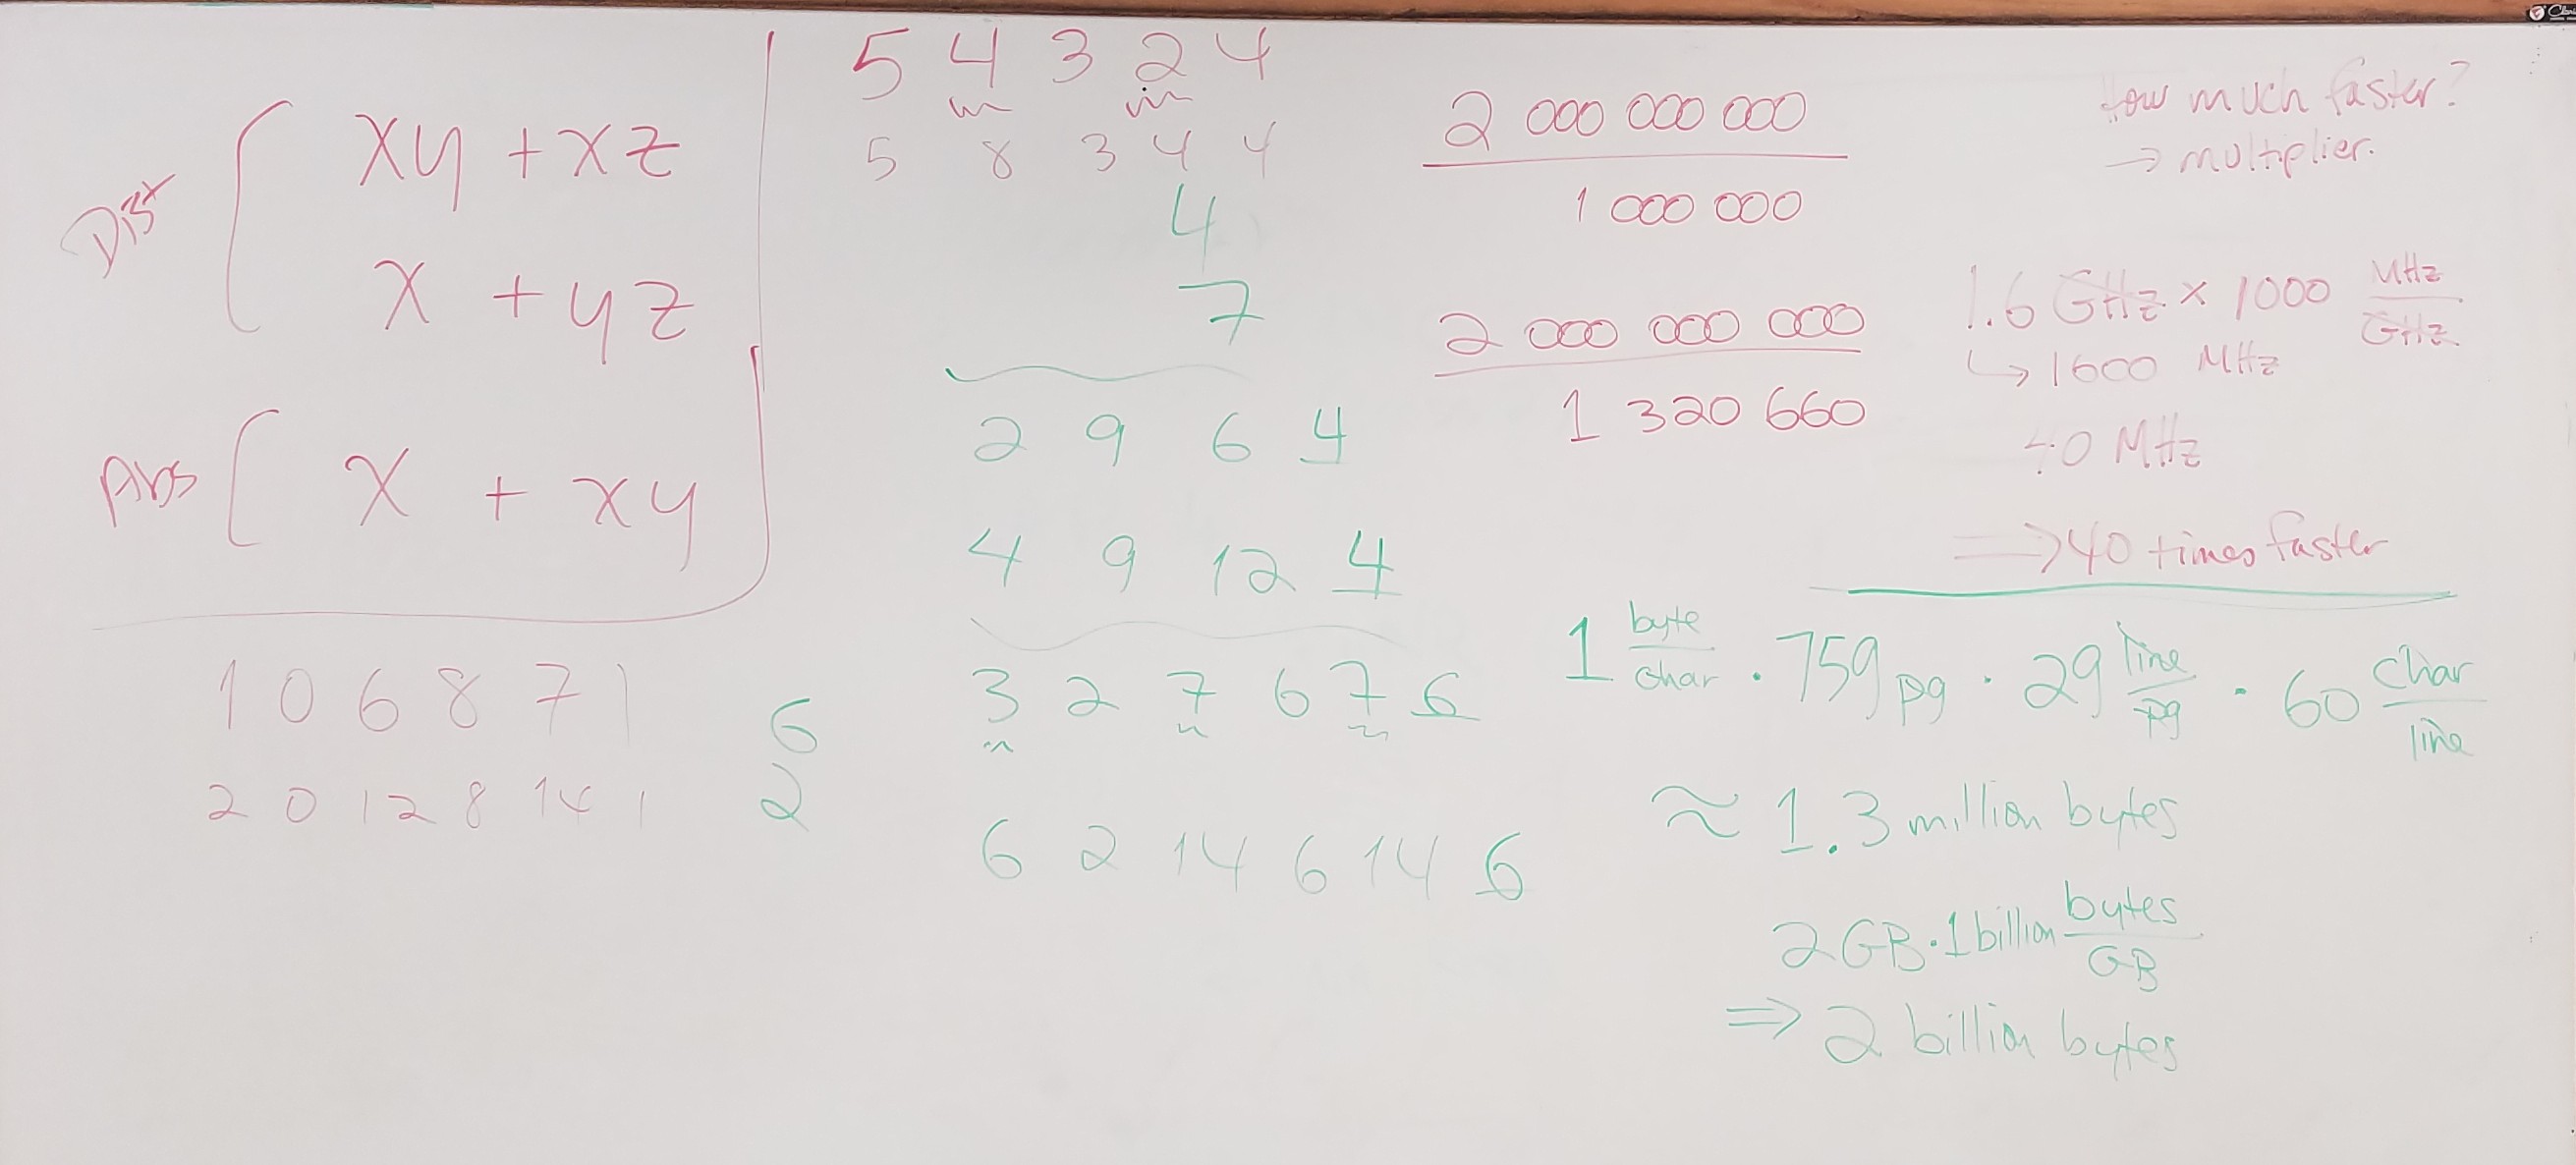 Dist
xy + xz
x + yz
Abs
x + xy
1 0 6 8 7 1
2 0 12 8 14 1
6
2
5 4 3 2 4
5 8 3 4 4
4
7
2 9 6 4
4 9 12 4
3 2 7 6 7 6
6 2 14 6 14 6
2 000 000 000
1 000 000
2 000 000 000
1 320 660
How much faster?
→ multiplier.
1.6 GHz × 1000 MHz
GHz
↳ 1600 MHz
40 MHz
⇒ 40 times faster
1 byte/char · 759 pg · 29 line/pg · 60 char/line
≈ 1.3 million bytes
2 GB · 1 billion bytes/GB
⇒ 2 billion bytes